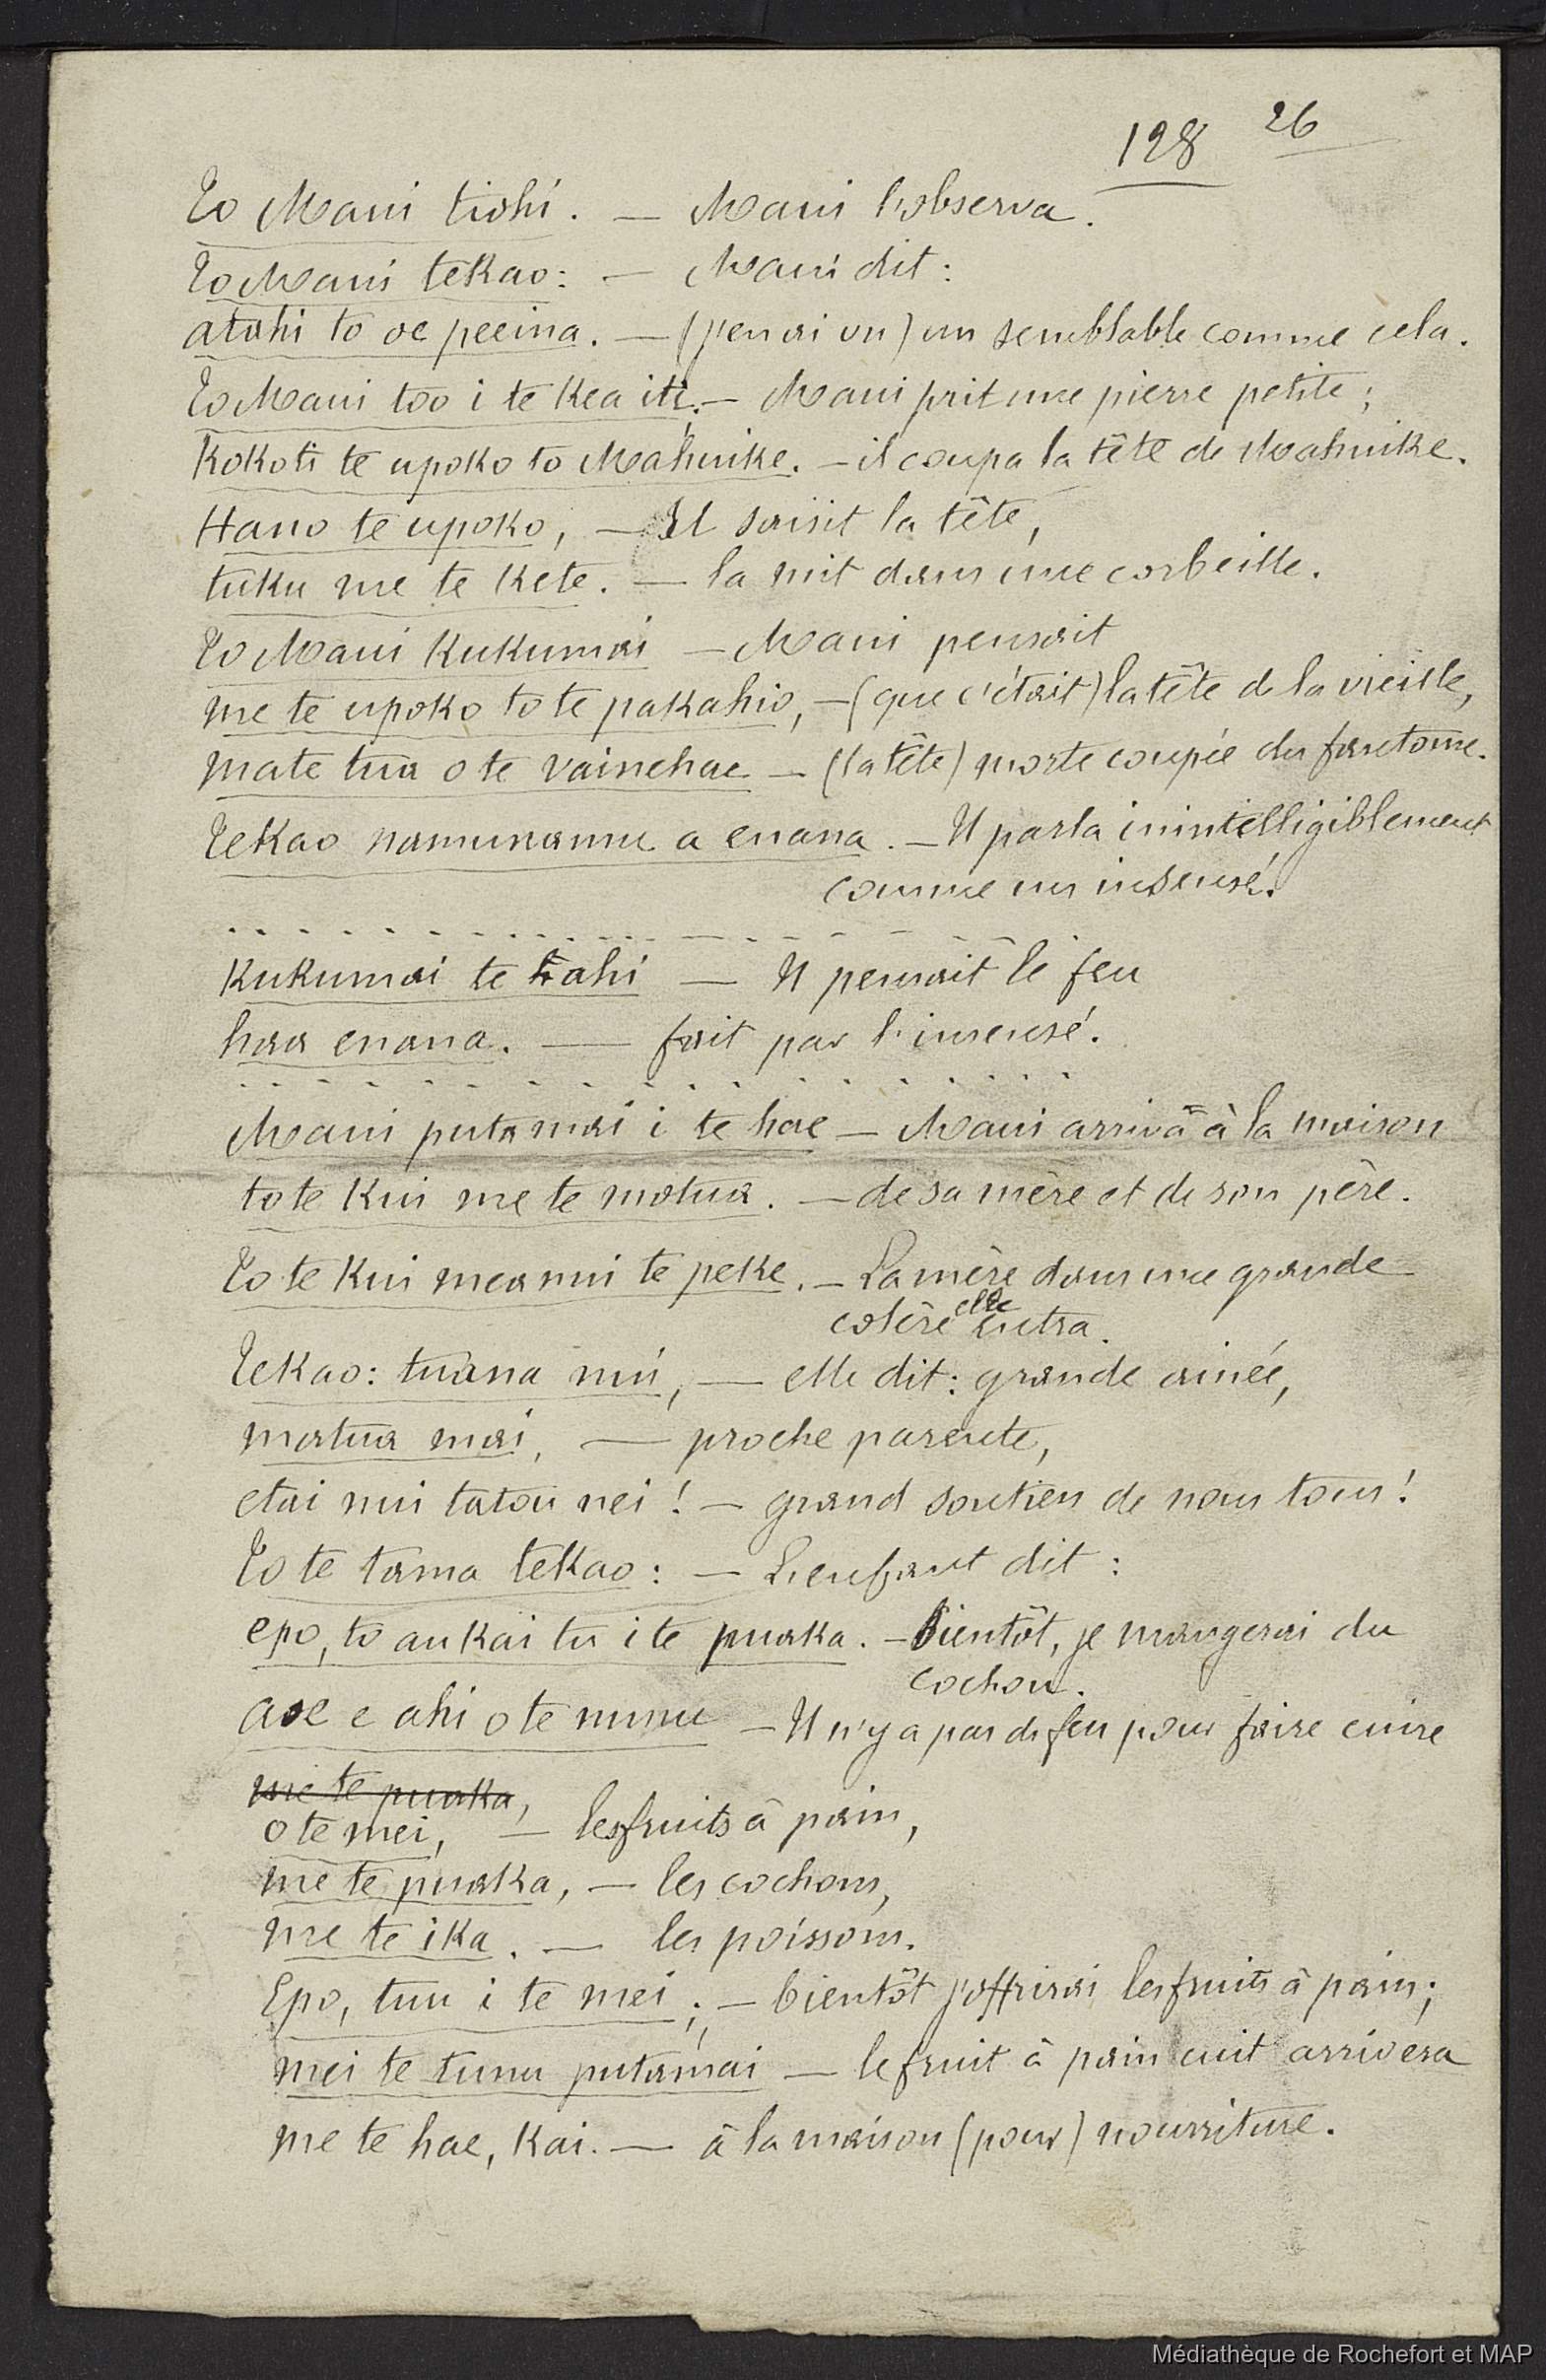 128 26
To Maui tiohi. — Maui l'observa.
To Maui tekao: — Maui dit:
atahi to oe peeina. — (j'en ai vu) un semblable comme cela.
To Maui too i te kea iti. — Maui prit une pierre petite;
Kokoti te upoko to Mahuike. — il coupa la tête de Mahuike.
Hano te upoko, — Il saisit la tête,
tuku me te kete. — la mit dans une corbeille.
To Maui kukumai — Maui pensait
me te upoko to te pakahio, — (que c'était) la tête de la vieille,
mate tua o te vainehae — (la tête) morte coupée du fantome.
Tekao namunamu a enana. — Il parla inintelligiblement
comme un insensé.
Kukumai te ahi — Il pensait le feu
haa enana. — fait par l'insensé.
Maui putamai i te hae — Maui arriva à la maison
to te kui me te motua. — de sa mère et de son père.
To te kui mea nui te peke. — La mère dans une grande
colère elle entra.
Tekao: tuana nui, — elle dit: grande ainée,
matua mai, — proche parente,
etai nui tatou nei! — grand soutien de nous tous!
To te tama tekao: — L'enfant dit:
epo, to au kai tu i te puaka. — Bientôt, je mangerai du
cochon.
aoe e ahi o te nunu — Il n'y a pas de feu pour faire cuire
me te puaka,
o te mei, — les fruits à pain,
me te puaka, — les cochons,
me te ika. — les poissons.
Epo, tuu i te mei; — bientôt j'offrirai les fruits à pain;
mei te tunu putamai — le fruit à pain cuit arrivera
me te hae, kai. — à la maison (pour) nourriture.
Médiathèque de Rochefort et MAP